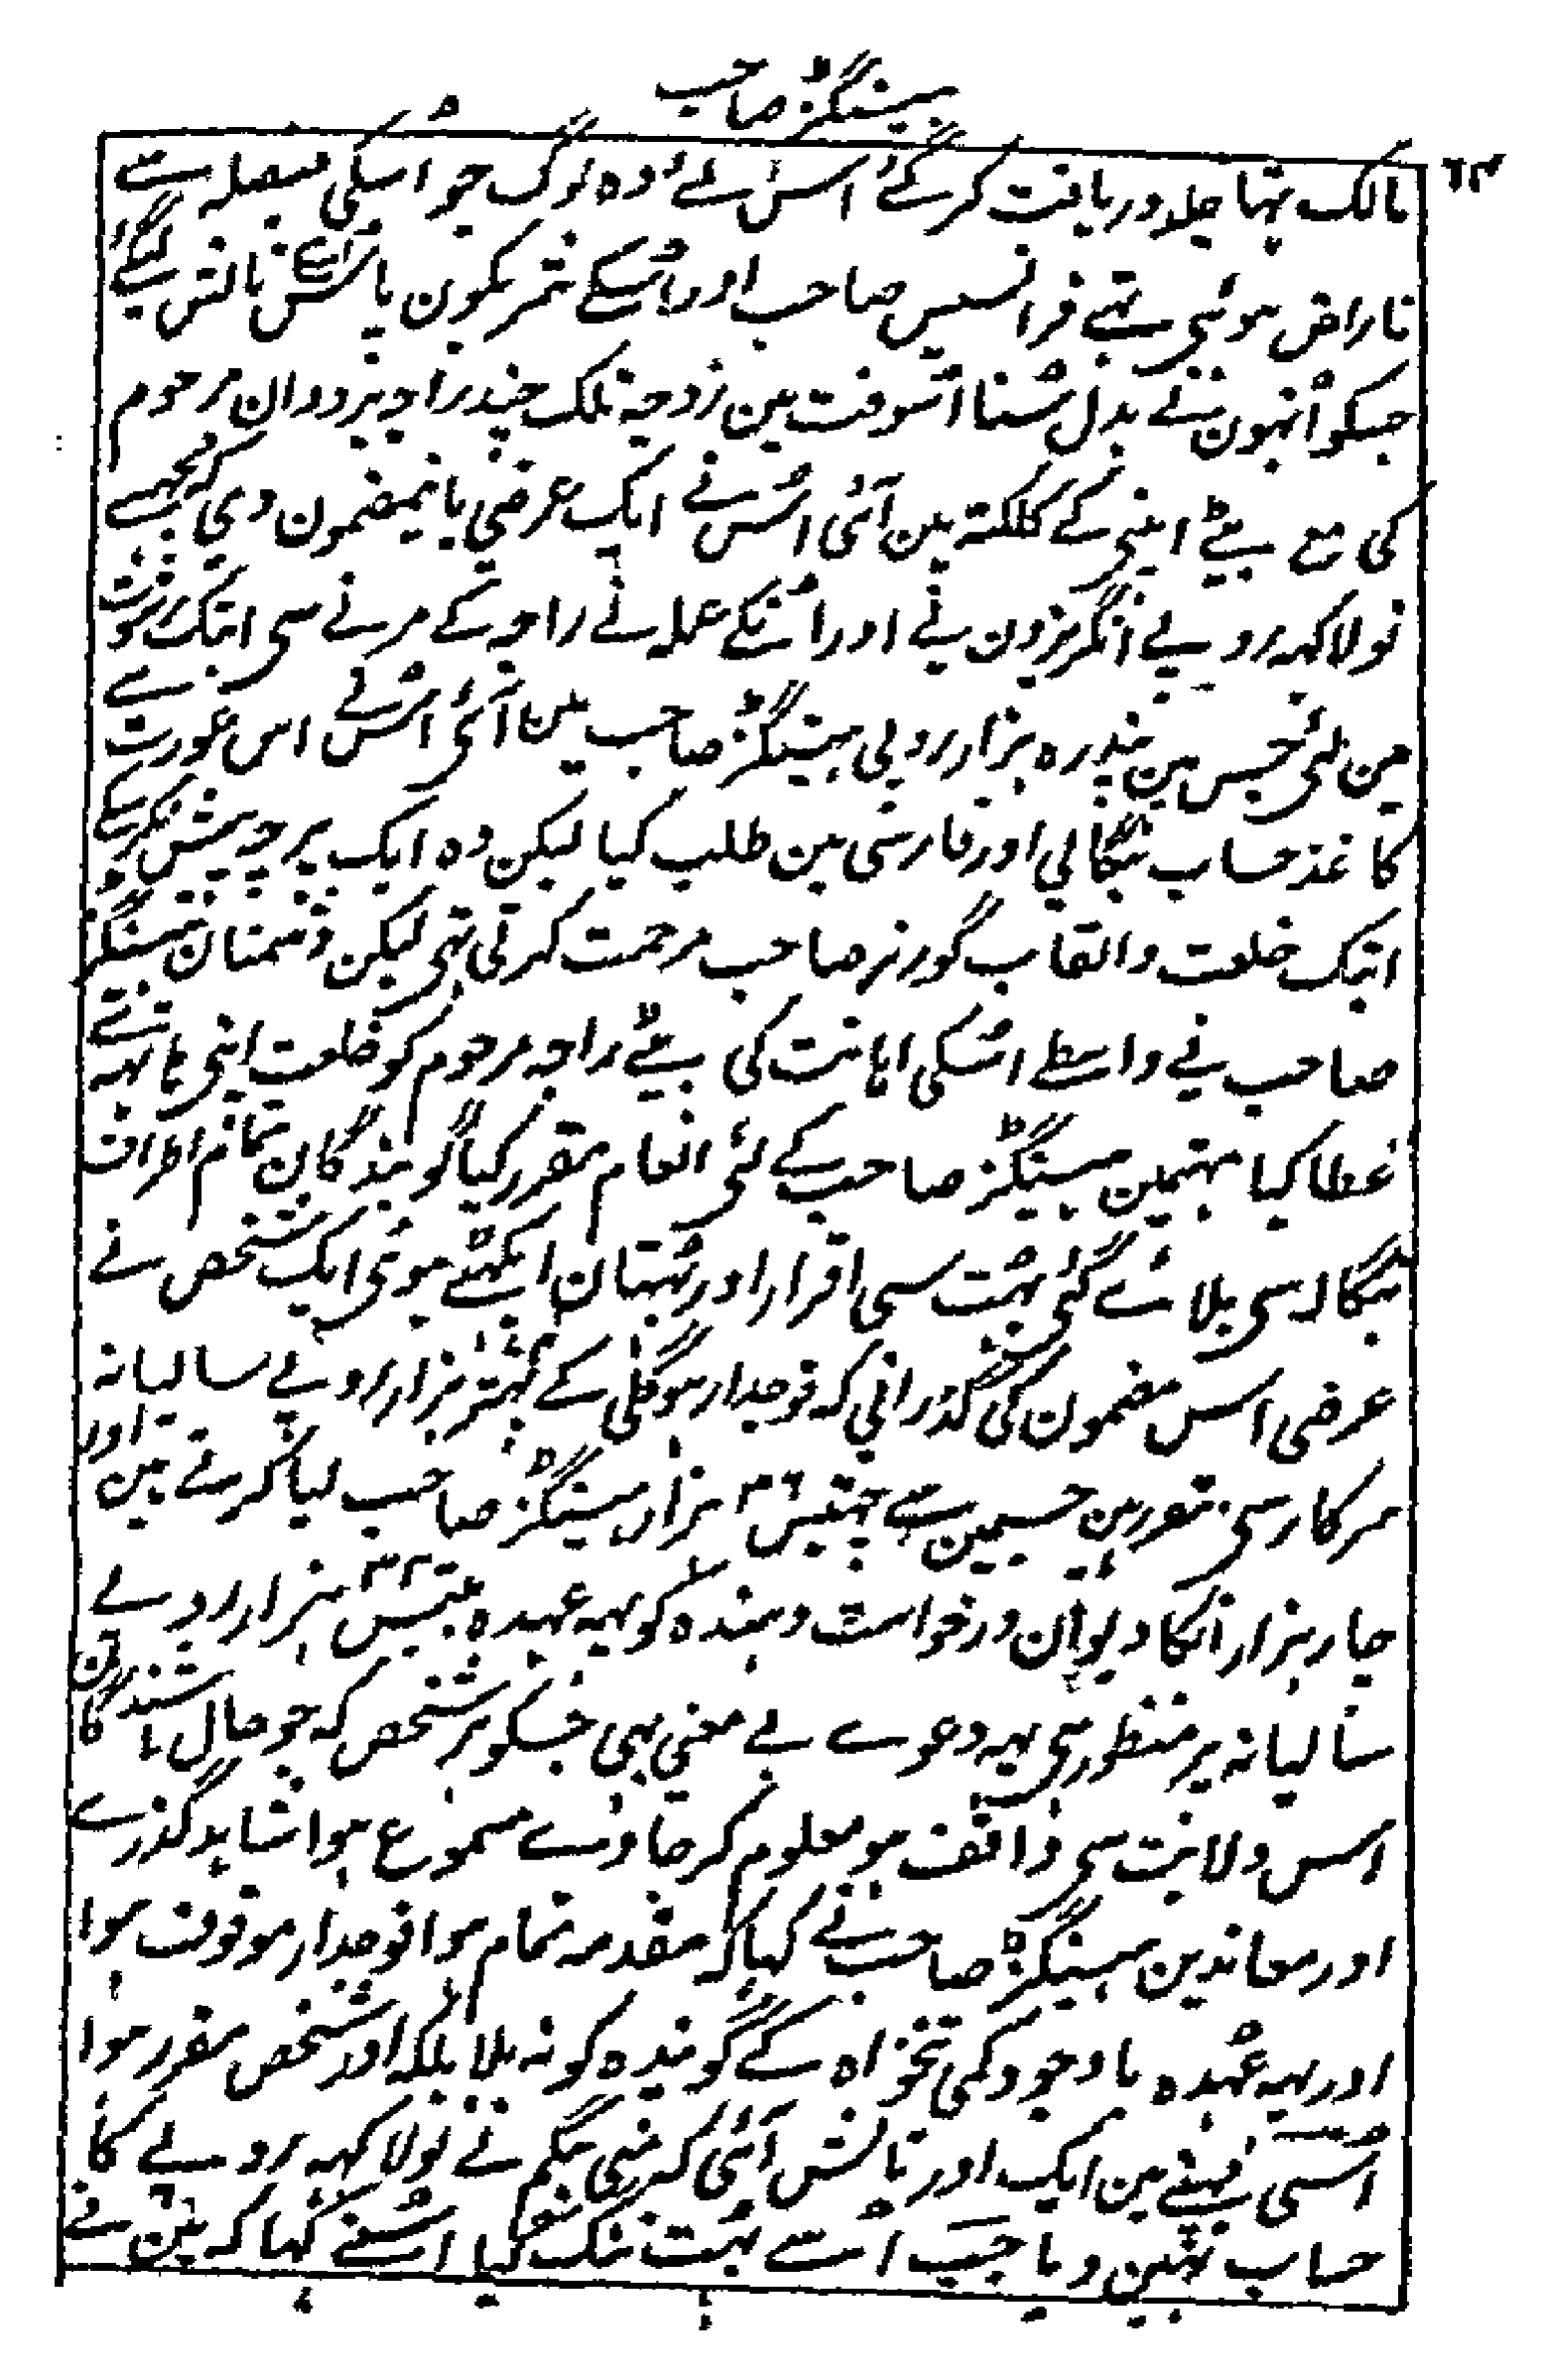 ہیسٹنگز صاحب
٦٣
مالک تہا حیلہ دریافت کر گئے اس لئے وہ لوگ جو اسکی فیصلہ سے
ناراض ہوئی تہے فرانسیس صاحب اور اسکے شریکون پاس نالش لیگئے
جسکو اُنہون نے بدل سُنا اُسوقت مین زوجہ تلک چندر راجہ بردوان مرحوم
کی مع بیٹے اپنی کے کلکتہ مین آئی اُس نے ایک عرضی باینمضمون دی کہ مجہسے
نو لاکہہ روپیے انگریزون نے اور اُنکے عملہ نے راجہ کے مرنے سی ابتک رشوت
مین لئی جس مین پندرہ ہزار روپی ہیسٹنگز صاحب مین آئی اُس نے اس عورت سے
کاغذ حساب بنگالی اور فارسی مین طلب کیا لیکن وہ ایک پرچہ پیش نکر سکے
ابتک خلعت و القاب گورنر صاحب مرحمت کرتی تہی لیکن دشمنان ہیسٹنگز
صاحب نے واسطے اُسکی اہانت کی بیٹے راجہ مرحوم کو خلعت اپنی ہاتہہ سے
عطا کیا مہتمین ہیسٹنگز صاحب کے لئی انعام مقرر کیا گویندگان تمام اطراف
بنگالہ سی بلائے گئی بہت سی اقرار اور بہتان اکہٹے ہوئی ایک شخص نے
عرضی اس مضمون کی گذرانی کہ فوجدار ہوگلی کے بہتر ہزار روپے سالیانہ
سرکار سی مقرر ہین جسمین سے چہتیس ٣٦ ہزار ہیسٹنگز صاحب لیا کرتے ہین اور
چار ہزار انکا دیوان درخواست دہندہ کو یہہ عہدہ بتیس ٣٢ ہزار روپے
سالیانہ پر منظور ہی یہہ دعوے بے معنی ہی جسکو ہر شخص کہ جو حال باشندگان
اس ولایت سی واقف ہو معلوم کر جاوے مسموع ہوا شاہد گذرے
اور معاندین ہیسٹنگز صاحب نے کہا کہ مقدمہ تمام ہوا فوجدار موقوف ہوا
اور یہہ عہدہ باوجود کمی تنخواہ کے گویندہ کو نہ ملا بلکہ اور شخص مقرر ہوا
اُسی ہفتے مین ایک اور نالش آئی کہ منی بیگم نے نو لاکہہ روپے کا
حساب نہین دیا جب اُسے بہت تنگ کیا اُسنے کہا کہ مین نے